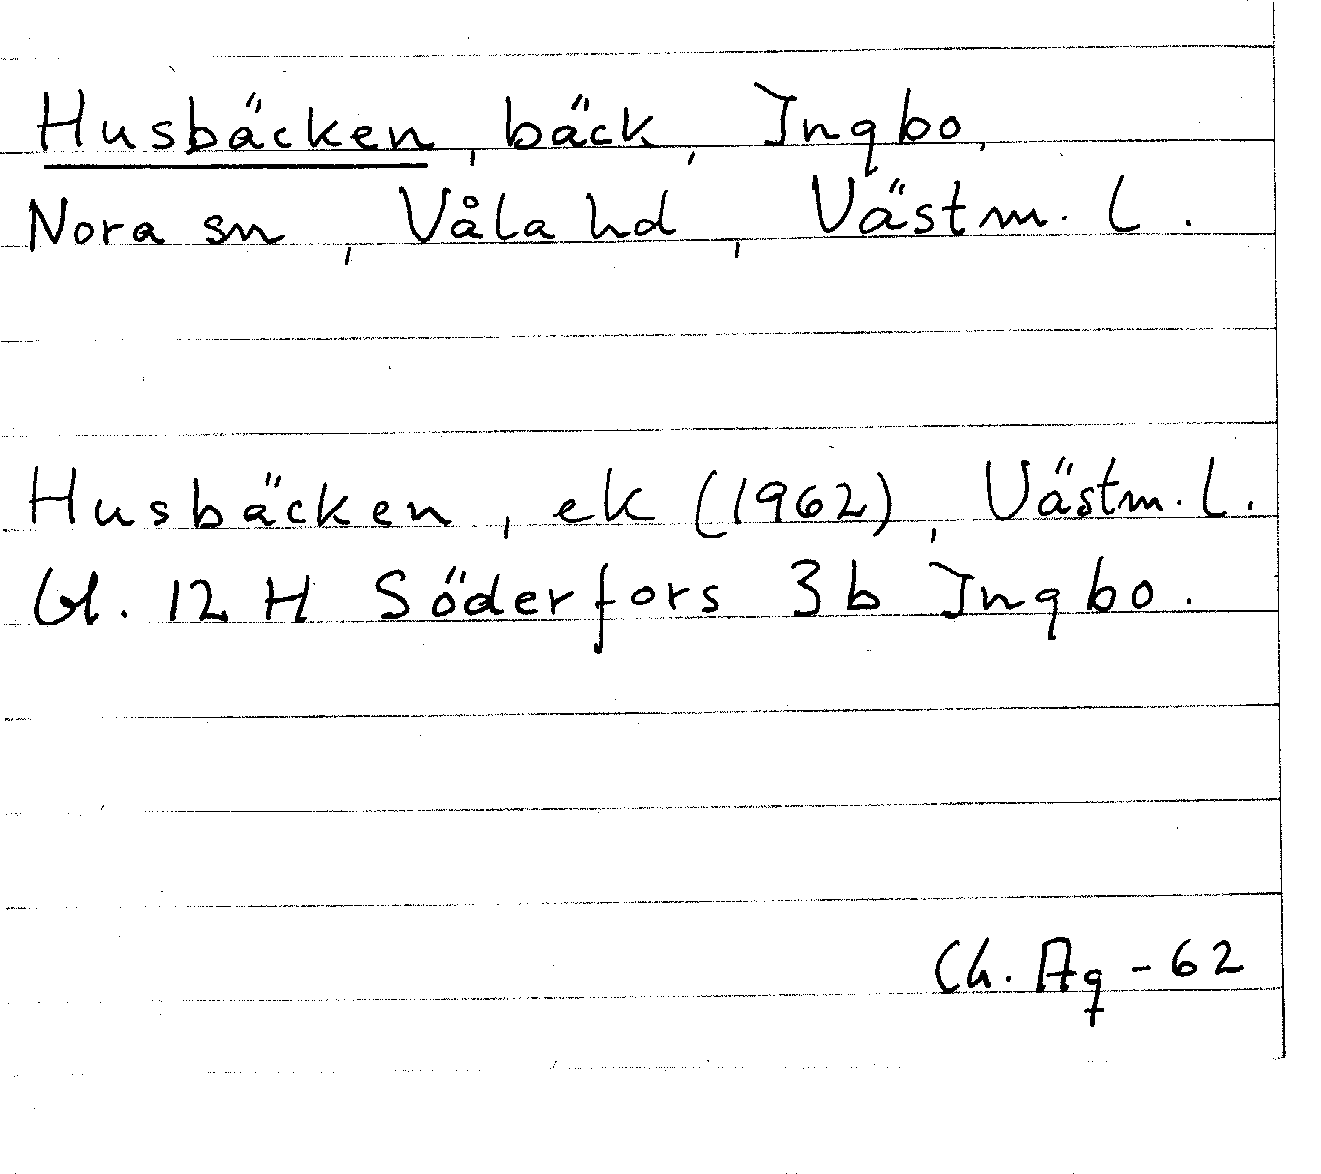 Husbäcken, bäck, Ingbo,
Nora sn, Våla hd, Västm. l.
Husbäcken, ek (1962), Västm. l.
bl. 12 H Söderfors 3b Ingbo.
Ch. Ag -62